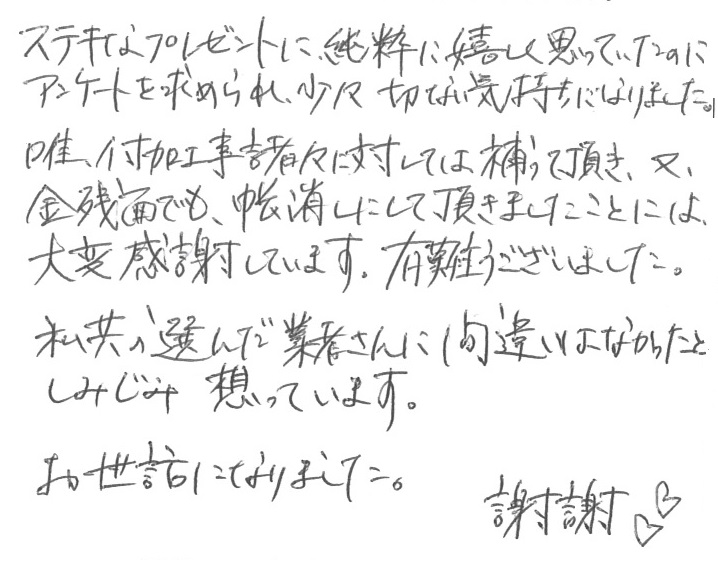 ステキなプレゼントに、純粋に嬉しく思っていたのに
アンケートを求められ、少々切ない気持ちになりました。
唯、付加工事諸々に対しては補って頂き、又、
金残面でも、帳消しにして頂きましたことには、
大変感謝しています。有難うございました。
私共の選んだ業者さんに間違いはなかったと
しみじみ想っています。
お世話になりました。
謝謝♡♡